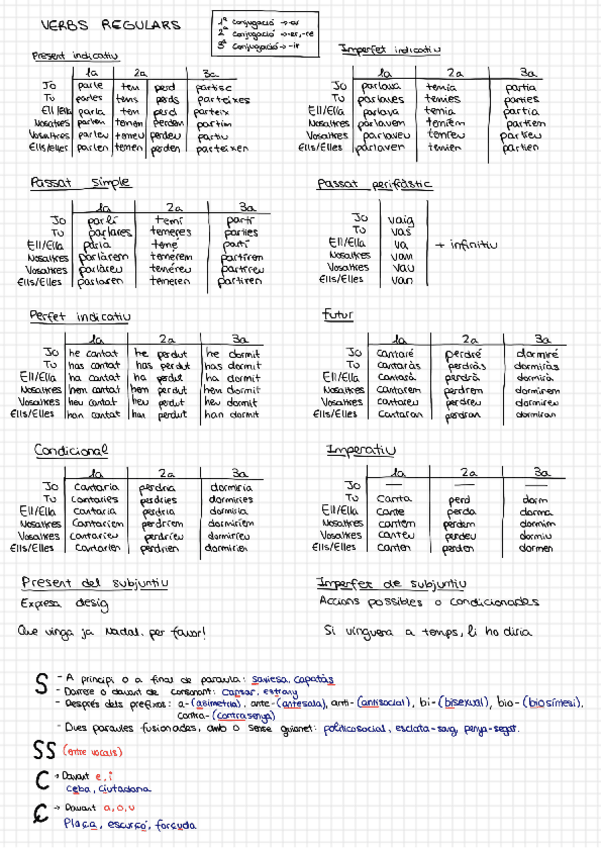 VERBS REGULARS
1ª Conjugació → -ar
2ª Conjugació → -er, -re
3ª Conjugació → -ir
Present indicatiu
1a 2a 3a
Jo parle tem perd partisc
Tu parles tems perds parteixes
Ell/Ella parla tem perd parteix
Nosaltres parlem temem perdem partim
Vosaltres parleu temeu perdeu partiu
Ells/elles parlen temen perden parteixen
Imperfet indicatiu
1a 2a 3a
Jo parlava temia partia
Tu parlaves temies parties
Ell/Ella parlava temia partia
Nosaltres parlavem temíem partíem
Vosaltres parlaveu temíeu partíeu
Ells/Elles parlaven temien partien
Passat simple
1a 2a 3a
Jo parlí temí partí
Tu parlares temeres parties
Ell/Ella parla temé partí
Nosaltres parlàrem temérem partírem
Vosaltres parlàreu teméreu partíreu
Ells/Elles parlaren temeren partiren
Passat perifràstic
Jo vaig
Tu vas
Ell/Ella va + infinitiu
Nosaltres vam
Vosaltres vau
Ells/Elles van
Perfet indicatiu
1a 2a 3a
Jo he cantat he perdut he dormit
Tu has cantat has perdut has dormit
Ell/Ella ha cantat ha perdut ha dormit
Nosaltres hem cantat hem perdut hem dormit
Vosaltres heu cantat heu perdut heu dormit
Ells/Elles han cantat han perdut han dormit
Futur
1a 2a 3a
Jo cantaré perdré dormiré
Tu cantaràs perdràs dormiràs
Ell/Ella cantarà perdrà dormirà
Nosaltres cantarem perdrem dormirem
Vosaltres cantareu perdreu dormireu
Ells/Elles cantaran perdran dormiran
Condicional
1a 2a 3a
Jo cantaria perdria dormiria
Tu cantaries perdries dormiries
Ell/Ella cantaria perdria dormiria
Nosaltres cantaríem perdríem dormiríem
Vosaltres cantaríeu perdríeu dormiríeu
Ells/Elles cantarien perdrien dormirien
Imperatiu
1a 2a 3a
Jo — — —
Tu Canta perd dorm
Ell/Ella cante perda dorma
Nosaltres cantem perdem dormim
Vosaltres canteu perdeu dormiu
Ells/Elles canten perden dormen
Present del subjuntiu
Expresa desig
Que vinga ja Nadal, per favor!
Imperfet de subjuntiu
Accions possibles o condicionades
Si vinguera a temps, li ho diria
S - A principi o a final de paraula: saviesa, capatàs
- Darrere o davant de consonant: cansar, estrany
- Després dels prefixos: a-(asimetria), ante-(antesala), anti-(antisocial), bi-(bisexual), bio-(biosíntesi),
contra-(contrasenya)
- Dues paraules fusionades, amb o sense guionet: politicosocial, esclata-sang, penya-segat.
SS (entre vocals)
C → Davant e, i
Ceba, Ciutadana
Ç → Davant a, o, u
Plaça, escurçó, forçuda